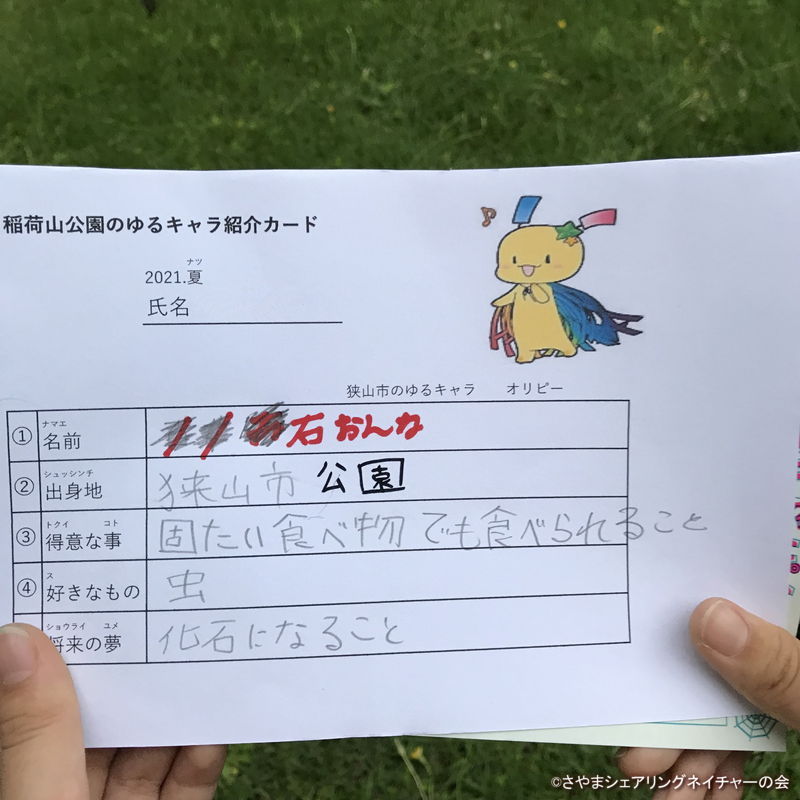 稲荷山公園のゆるキャラ紹介カード
ナツ
2021.夏
氏名
狭山市のゆるキャラ オリピー
ナマエ
① 名前 石おんな
シュッシンチ
② 出身地 狭山市 公園
トクイ コト
③ 得意な事 固たい食べ物でも食べられること
ス
④ 好きなもの 虫
ショウライ ユメ
将来の夢 化石になること
©さやまシェアリングネイチャーの会